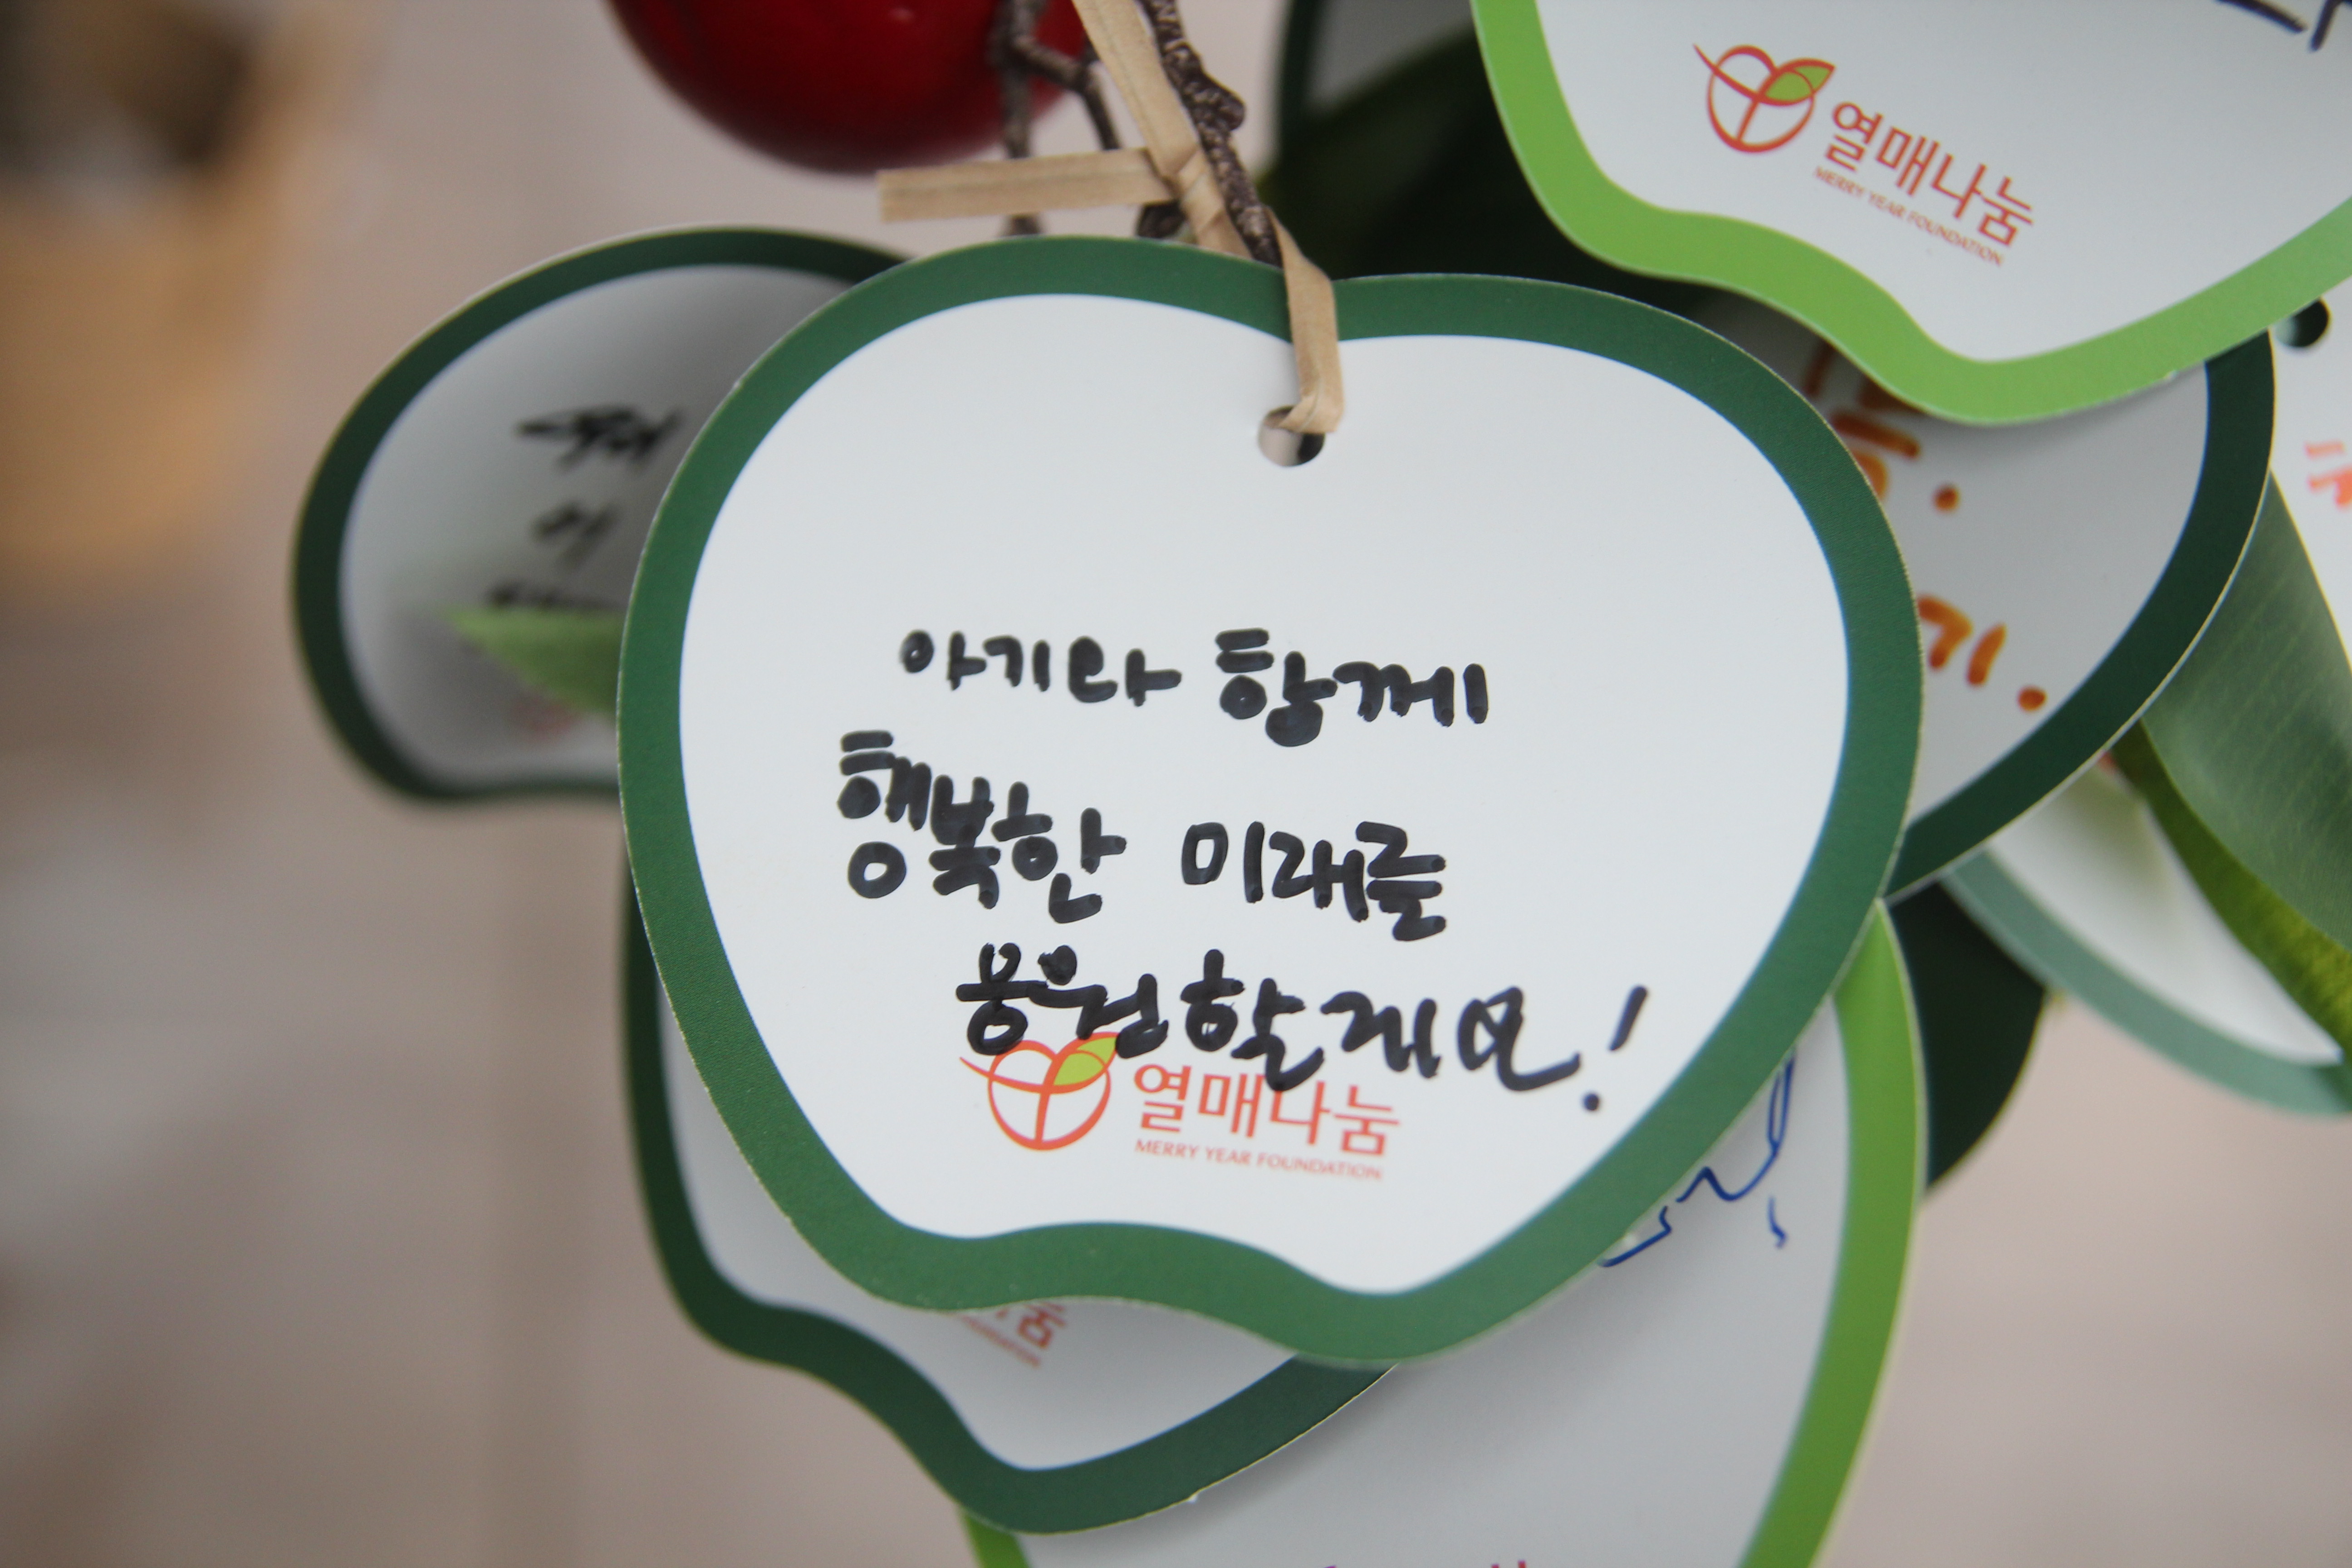 열매나눔
MERRY YEAR FOUNDATION
아기와 함께
행복한 미래를
응원할게요!
열매나눔
MERRY YEAR FOUNDATION